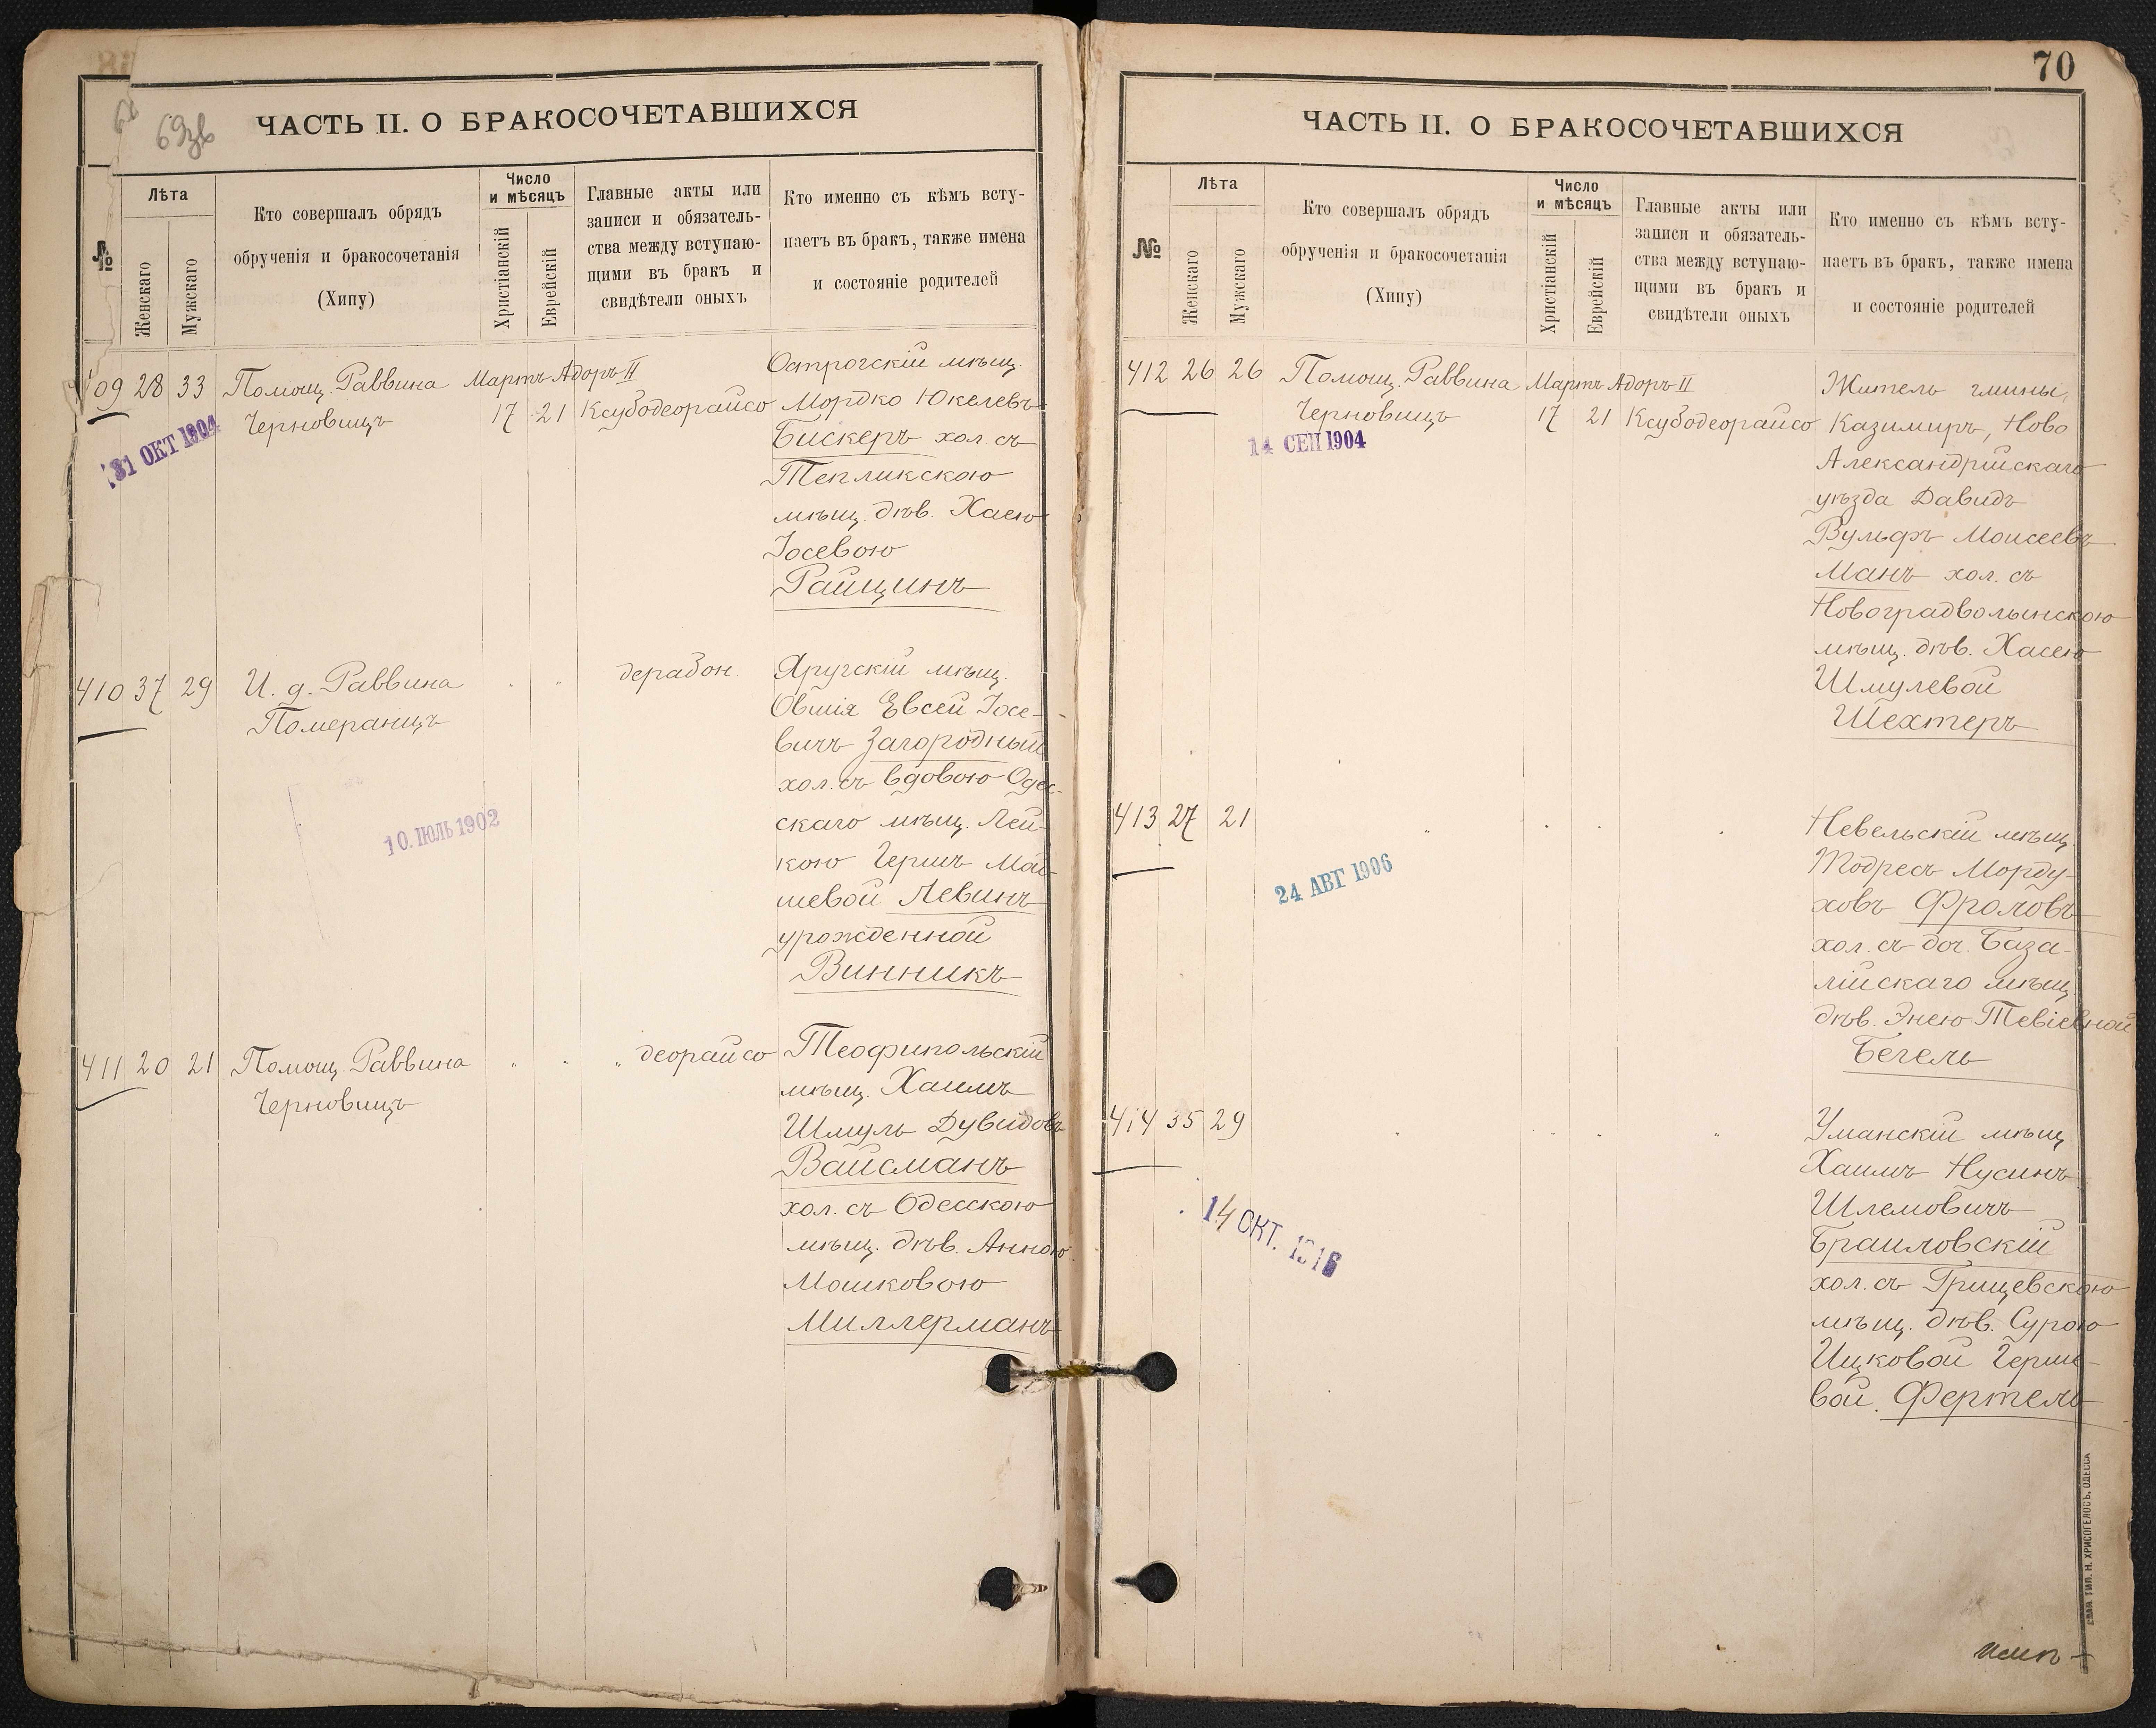 69зв
ЧАСТЬ II. О БРАКОСОЧЕТАВШИХСЯ
№
Лѣта
Женскаго
Мужскаго
Кто совершалъ обрядъ
обрученія и бракосочетанія
(Хипу)
Число
и мѣсяцъ
Христіанскій
Еврейскій
Главные акты или
записи и обязатель-
ства между вступаю-
щими въ бракъ и
свидѣтели оныхъ
Кто именно съ кѣмъ всту-
паетъ въ бракъ, также имена
и состояніе родителей
09 28 33 Помощ. Раввина Мартъ Адоръ II
Черновицъ 17 21 Ксубодеорайсо
31 ОКТ 1904
Острогскій мѣщ.
Мордко Юкелевъ
Бискеръ хол съ
Тепликскою
мѣщ. дѣв. Хаею
Іосевою
Райцинъ
410 37 29 И. д. Раввина " " дерабон.
Померанцъ
10. ІЮЛЬ 1902
Яругскій мѣщ.
Овшія Евсей Іосе-
вичъ Загородный
хол. съ вдовою Одес-
скаго мѣщ. Лей-
кою Герш Мой-
шевой Левинъ
урожденной
Винникъ
411 20 21 Помощ. Раввина " " " деорайсо
Черновицъ
Теофипольскій
мѣщ. Хаимъ
Шмуль Дувидовъ
Вайсманъ
хол. съ Одесскою
мѣщ. дѣв. Анною
Мошковою
Миллерманъ
70
ЧАСТЬ II. О БРАКОСОЧЕТАВШИХСЯ
№
Лѣта
Женскаго
Мужскаго
Кто совершалъ обрядъ
обрученія и бракосочетанія
(Хипу)
Число
и мѣсяцъ
Христіанскій
Еврейскій
Главные акты или
записи и обязатель-
ства между вступаю-
щими въ бракъ и
свидѣтели оныхъ
Кто именно съ кѣмъ всту-
паетъ въ бракъ, также имена
и состояніе родителей
412 26 26 Помощ. Раввина Мартъ Адоръ II
Черновицъ 17 21 Ксубодеорайсо
14 СЕН 1904
Житель гмины
Казимиръ, Ново
Александрійскаго
уѣзда Давидъ
Вульфъ Моисеевъ
Манъ хол. съ
Новоградволынскою
мѣщ. дѣв. Хасею
Шмулевой
Шехтеръ
413 27 21 " " " "
24 АВГ 1906
Невельскій мѣщ.
Тодресъ Морду-
ховъ Фроловъ
хол. съ доч. База-
лійскаго мѣщ.
дѣв. Энею Тевіевной
Бегель
414 35 29 " " " "
14 ОКТ. 1916
Уманскій мѣщ.
Хаимъ Нусинъ
Шлемовичъ
Браиловскій
хол. съ Грицевскою
мѣщ. дѣв. Сурою
Ицковой Герше-
вой. Фертель
СЛАВ. ТИП. Н. ХРИСОГЕЛОСЪ, ОДЕССА